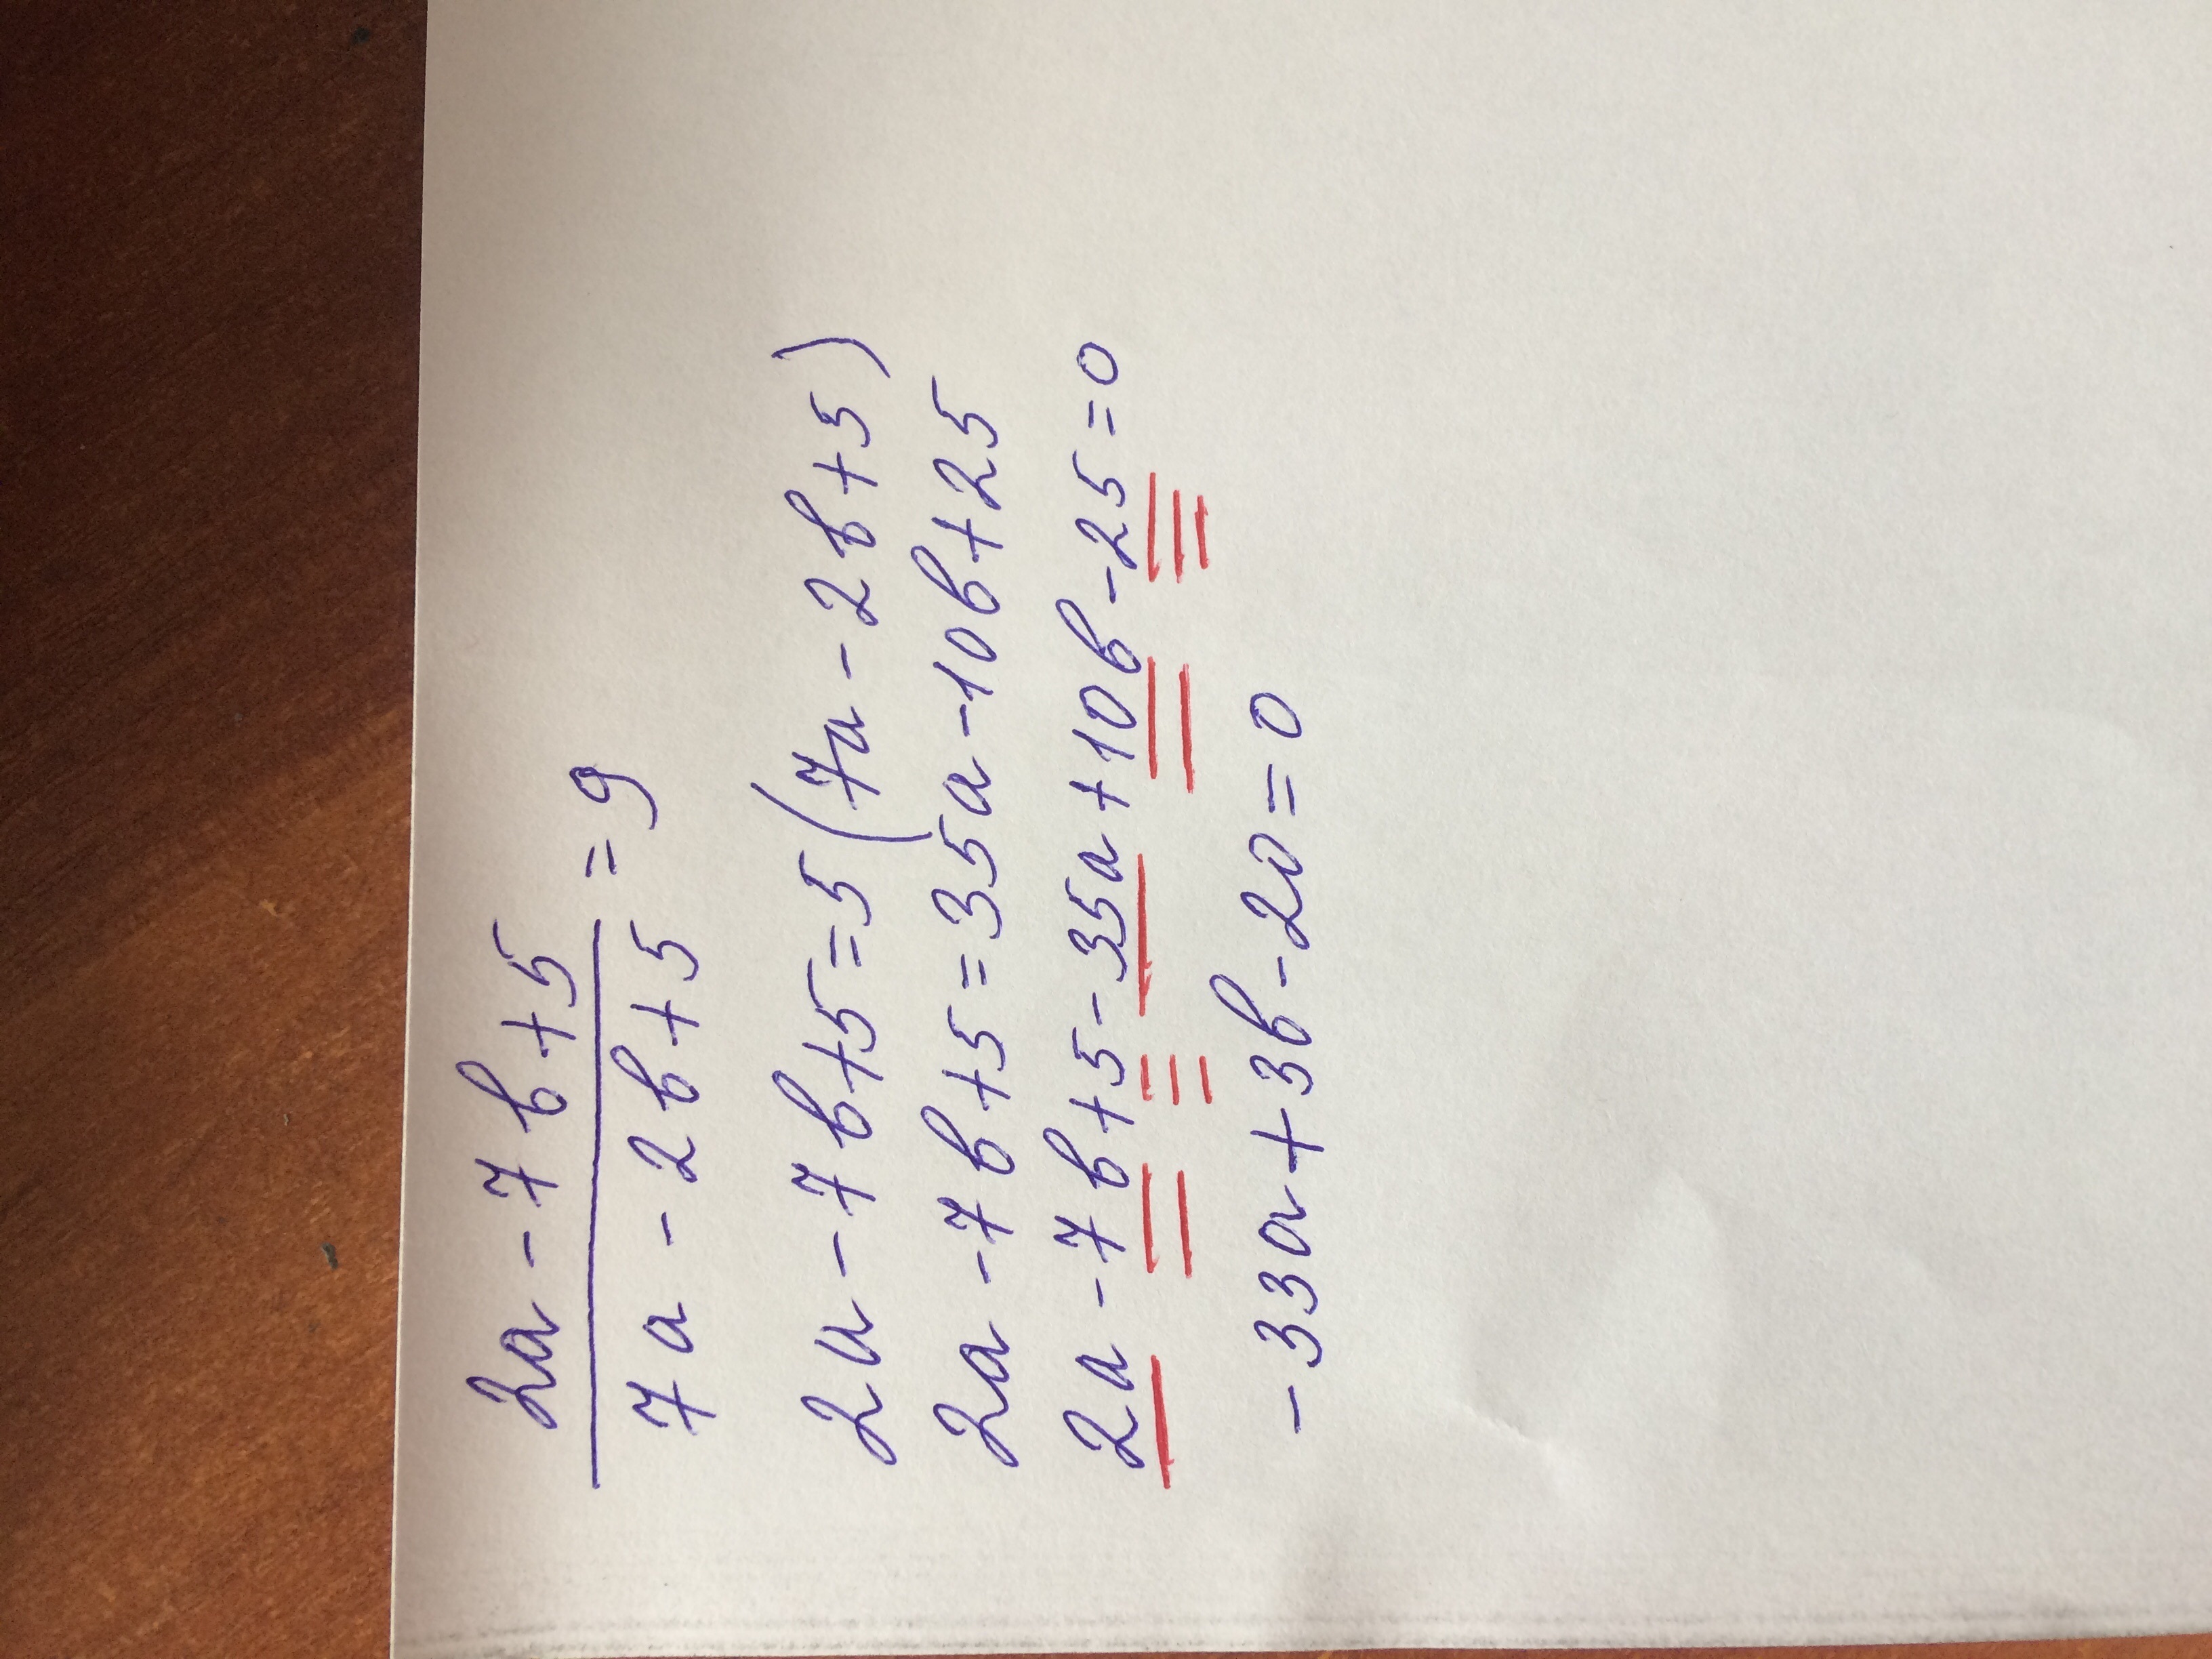 2a - 7b + 5
7a - 2b + 5 = 9
2a - 7b + 5 = 5(7a - 2b + 5)
2a - 7b + 5 = 35a - 10b + 25
2a - 7b + 5 - 35a + 10b - 25 = 0
-33a + 3b - 20 = 0